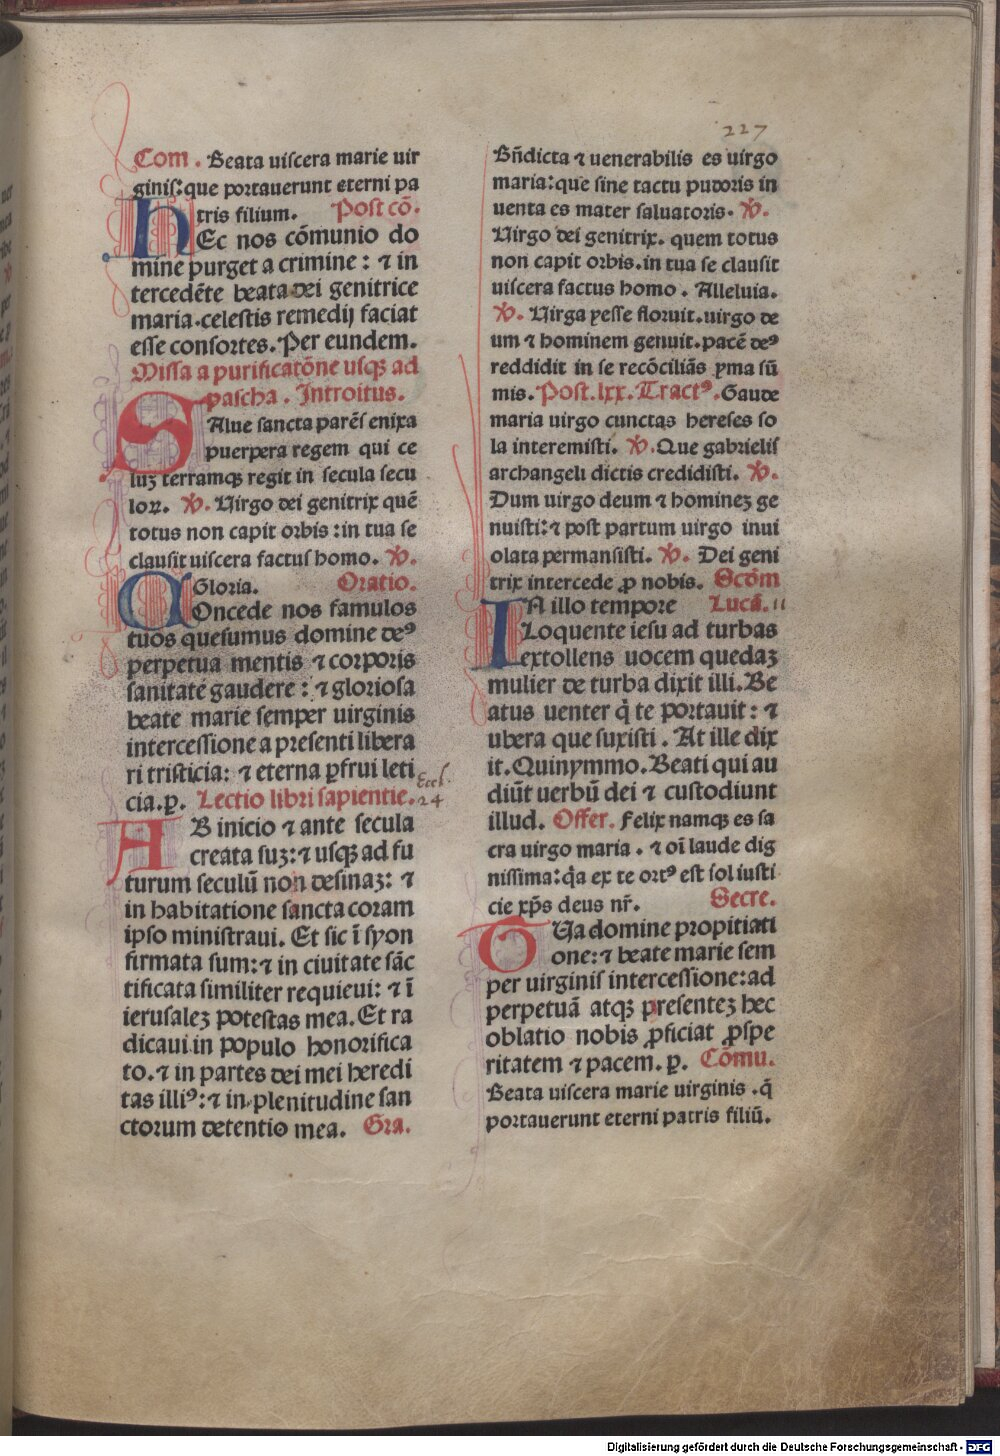 227
Com. Beata uiscera marie uir
ginis: que portauerunt eterni pa
tris filium. Post cō.
hEc nos cōmunio do
mine purget a crimine: ⁊ in
tercedēte beata dei genitrice
maria. celestis remedij faciat
esse consortes. Per eundem.
Missa a purificatōne usqꝫ ad
pascha. Introitus.
SAlue sancta parēs enixa
puerpera regem qui ce
luꝫ terramqꝫ regit in secula secu
loꝝ. ℣. Uirgo dei genitrix quē
totus non capit orbis: in tua se
clausit uiscera factus homo. ℣.
Gloria. Oratio.
COncede nos famulos
tuos quesumus domine deꝰ
perpetua mentis ⁊ corporis
sanitate gaudere: ⁊ gloriosa
beate marie semper uirginis
intercessione a presenti libera
ri tristicia: ⁊ eterna ꝑfrui leti
cia. ꝑ. Lectio libri sapientie.
Eccl.
24
AB inicio ⁊ ante secula
creata suꝫ: ⁊ usqꝫ ad fu
turum seculū non desinaꝫ: ⁊
in habitatione sancta coram
ipso ministraui. Et sic ī syon
firmata sum: ⁊ in ciuitate sāc
tificata similiter requieui: ⁊ ī
ierusaleꝫ potestas mea. Et ra
dicaui in populo honorifica
to. ⁊ in partes dei mei heredi
tas illiꝰ: ⁊ in plenitudine san
ctorum detentio mea. Gra.
Bn̄dicta ⁊ uenerabilis es uirgo
maria: que sine tactu pudoris in
uenta es mater saluatoris. ℣.
Uirgo dei genitrix. quem totus
non capit orbis. in tua se clausit
uiscera factus homo. Alleluia.
℣. Uirga yesse floruit. uirgo de
um ⁊ hominem genuit. pacē deꝰ
reddidit in se recōciliās yma sū
mis. Post. lxx. Tractꝰ. Gaude
maria uirgo cunctas hereses so
la interemisti. ℣. Que gabrielis
archangeli dictis credidisti. ℣.
Dum uirgo deum ⁊ homineꝫ ge
nuisti: ⁊ post partum uirgo inui
olata permansisti. ℣. Dei geni
trix intercede ꝓ nobis. Scōm
IN illo tempore Lucā. 11
Loquente iesu ad turbas
extollens uocem quedaꝫ
mulier de turba dixit illi. Be
atus uenter q̄ te portauit: ⁊
ubera que suxisti. At ille dix
it. Quinymmo. Beati qui au
diūt uerbū dei ⁊ custodiunt
illud. Offer. Felix namqꝫ es sa
cra uirgo maria. ⁊ oī laude dig
nissima: q̄a ex te ortꝰ est sol iusti
cie xp̄s deus nr̄. Secre.
TUa domine propitiati
one: ⁊ beate marie sem
per uirginis intercessione: ad
perpetuā atqꝫ presenteꝫ hec
oblatio nobis ꝓficiat ꝓspe
ritatem ⁊ pacem. ꝑ. Cōmu.
Beata uiscera marie uirginis. q̄
portauerunt eterni patris filiū.
Digitalisierung gefördert durch die Deutsche Forschungsgemeinschaft - DFG